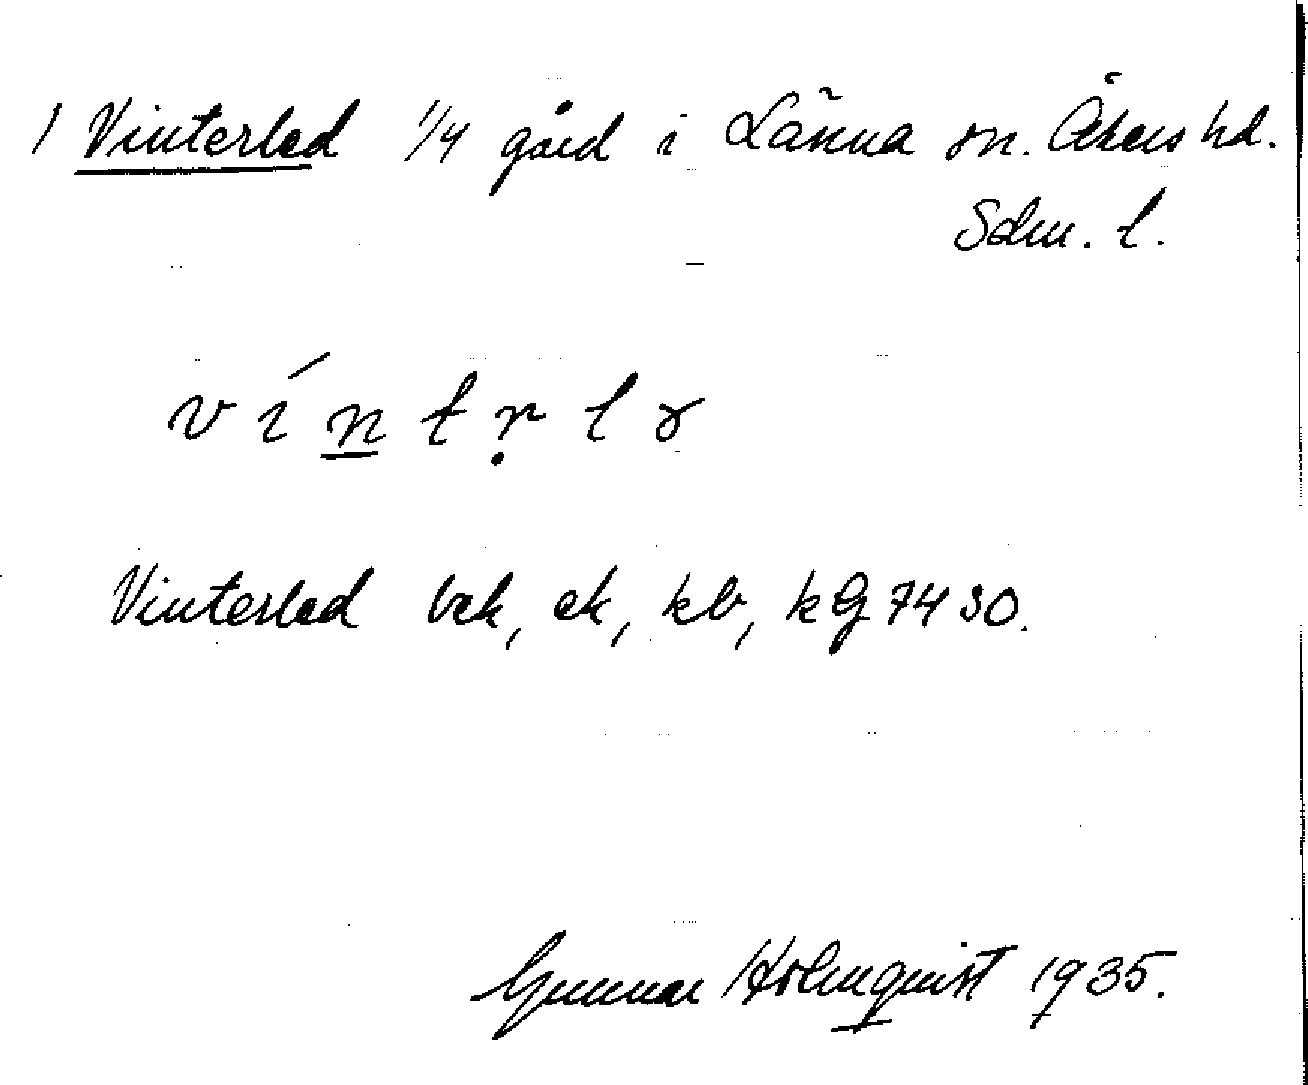 1 Vinterled 1/4 gård i Länna sn. Åkers hd.
Sdm. l.
víntṛlɤ
Vinterled bek, ek, kb, kG 7430.
Gunnar Holmquist 1935.